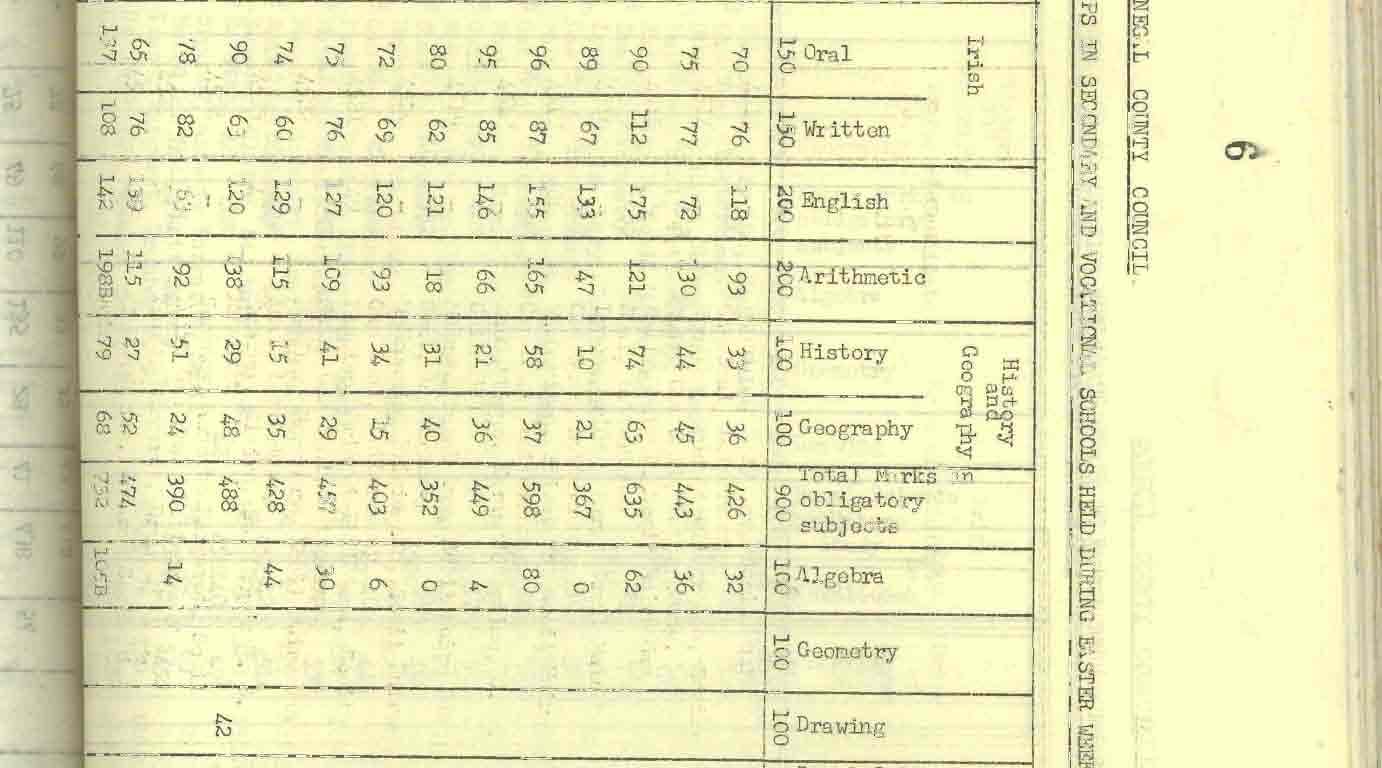 6
NEGAL COUNTY COUNCIL.
PS IN SECONDARY AND VOCATIONAL SCHOOLS HELD DURING EASTER WEEK
Irish
History
and
Geography
Oral
Written
English
Arithmetic
History
Geography
Total Marks in
obligatory
subjects
Algebra
Geometry
Drawing
150 150 200 200 100 100 900 100 100 100
70 76 118 93 33 36 426 32
75 77 72 130 44 45 443 36
90 112 175 121 74 63 635 62
89 67 133 47 10 21 367 0
96 87 155 165 58 37 598 80
95 85 146 66 21 36 449 4
80 62 121 18 31 40 352 0
72 69 120 93 34 15 403 6
75 76 127 109 41 29 457 30
74 60 129 115 15 35 428 44
90 63 120 138 29 48 488 42
78 82 63 92 51 24 390 14
65 76 139 115 27 52 474
137 108 142 198B 79 68 732 105B